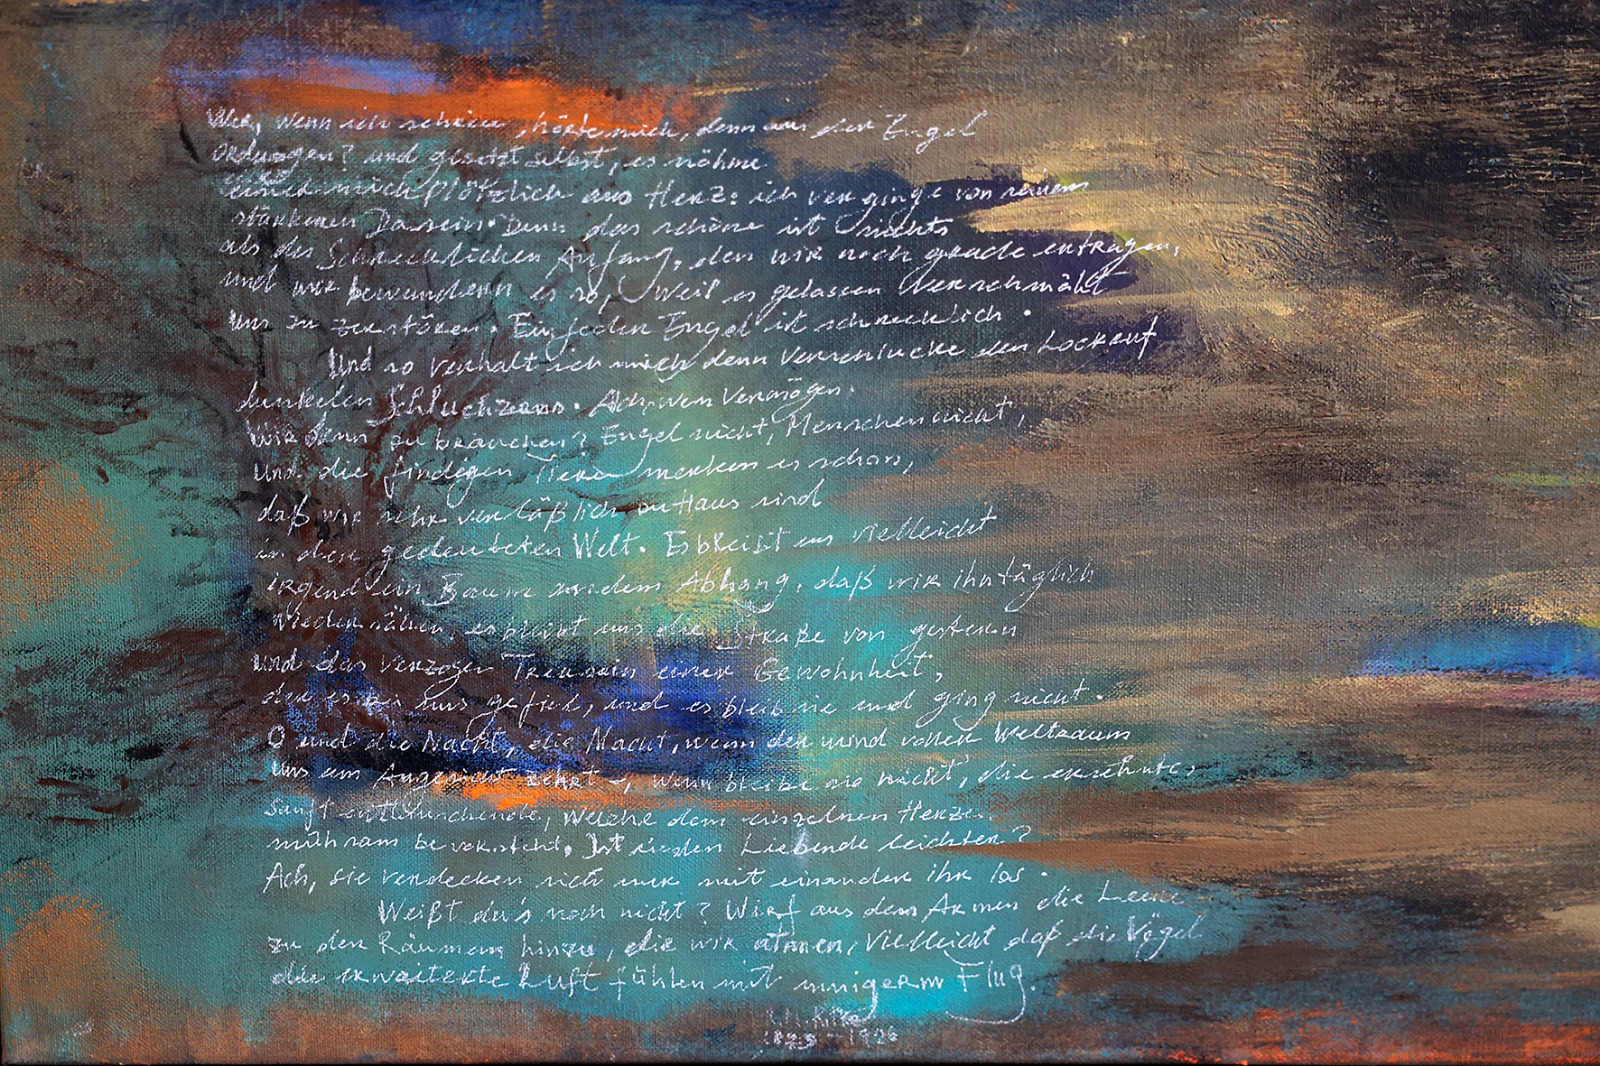 Wer, wenn ich schriee, hörte mich, denn aus der Engel
Ordnungen? und gesetzt selbst, es nähme
einer mich plötzlich ans Herz: ich verginge von seinem
stärkeren Dasein. Denn das schöne ist nichts
als des Schrecklichen Anfang, den wir noch grade ertragen,
und wir bewundern es so, Weil es gelassen Verschmäht
uns zu zerstören. Ein jeder Engel ist schrecklich.
Und so verhalt ich mich denn Verschlucke den Lockruf
dunkelen Schluchzens. Ach, wen Vermögen
Wir denn zu brauchen? Engel nicht, Menschen nicht,
Und die findigen Tiere merken es schon,
daß wir sehr verläßlich zu Haus sind
in der gedeuteten Welt. Es bleibt uns vielleicht
irgend ein Baum an dem Abhang, daß wir ihn täglich
wieder sähen, es bleibt uns die Straße von gestern
und das verzogen Treusein einer Gewohnheit,
der es bei uns gefiel, und es blieb sie und ging nicht.
O und die Nacht, die Nacht, wenn der wind voller Weltraum
Uns am Angesicht zehrt –, wenn bleibe sie nicht, die ersehnte,
Sanft enttäuschende, welche dem einzelnen Herzen
mühsam bevorsteht. Ist sie den Liebende leichter?
Ach, sie verdecken sich nur mit einander ihr los.
Weißt du's noch nicht? Wirf aus dem Armen die Leere
zu den Räumen hinzu, die wir atmen, Vielleicht daß die Vögel
die erweiterte Luft fühlen mit innigerm Flug.
R.M. Rilke
1875 – 1926